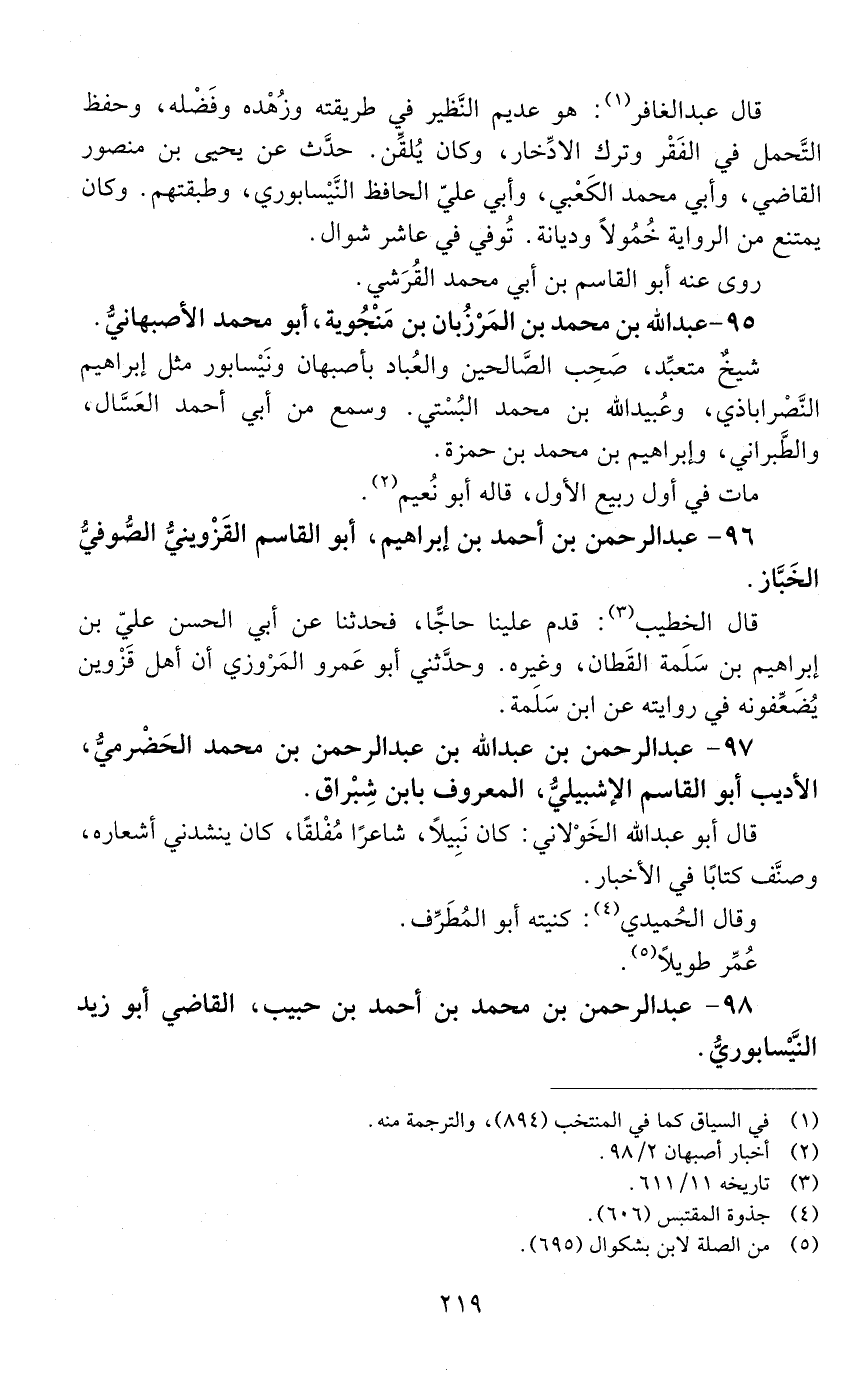 قال عبدالغافر(١): هو عديم النَّظير في طريقته وزُهْده وفَضْله، وحفظ
التَّحمل في الفَقْر وترك الادِّخار، وكان يُلقَّن. حدَّث عن يحيى بن منصور
القاضي، وأبي محمد الكَعْبي، وأبي عليّ الحافظ النَّيْسابوري، وطبقتهم. وكان
يمتنع من الرواية خُمُولاً وديانة. تُوفي في عاشر شوال.
روى عنه أبو القاسم بن أبي محمد القُرَشي.
٩٥-عبدالله بن محمد بن المَرْزُبان بن مَنْجُوية، أبو محمد الأصبهانيُّ.
شيخٌ متعبِّد، صَحِب الصَّالحين والعُباد بأصبهان ونَيْسابور مثل إبراهيم
النَّصْراباذي، وعُبيدالله بن محمد البُسْتي. وسمع من أبي أحمد العَسَّال،
والطَّبراني، وإبراهيم بن محمد بن حمزة.
مات في أول ربيع الأول، قاله أبو نُعيم(٢).
٩٦- عبدالرحمن بن أحمد بن إبراهيم، أبو القاسم القَزْوينيُّ الصُّوفيُّ
الخَبَّاز.
قال الخطيب(٣): قدم علينا حاجًّا، فحدثنا عن أبي الحسن عليّ بن
إبراهيم بن سَلَمة القَطان، وغيره. وحدَّثني أبو عَمرو المَرْوزي أن أهل قَزْوين
يُضَعِّفونه في روايته عن ابن سَلَمة.
٩٧- عبدالرحمن بن عبدالله بن عبدالرحمن بن محمد الحَضْرميُّ،
الأديب أبو القاسم الإشبيليُّ، المعروف بابن شِبْراق.
قال أبو عبدالله الخَوْلاني: كان نَبِيلاً، شاعرًا مُفْلقًا، كان ينشدني أشعاره،
وصنَّف كتابًا في الأخبار.
وقال الحُميدي(٤): كنيته أبو المُطَرِّف.
عُمِّر طويلاً(٥).
٩٨- عبدالرحمن بن محمد بن أحمد بن حبيب، القاضي أبو زيد
النَّيْسابوريُّ.
(١) في السياق كما في المنتخب (٨٩٤)، والترجمة منه.
(٢) أخبار أصبهان ٢/ ٩٨.
(٣) تاريخه ١١/ ٦١١.
(٤) جذوة المقتبس (٦٠٦).
(٥) من الصلة لابن بشكوال (٦٩٥).
٢١٩